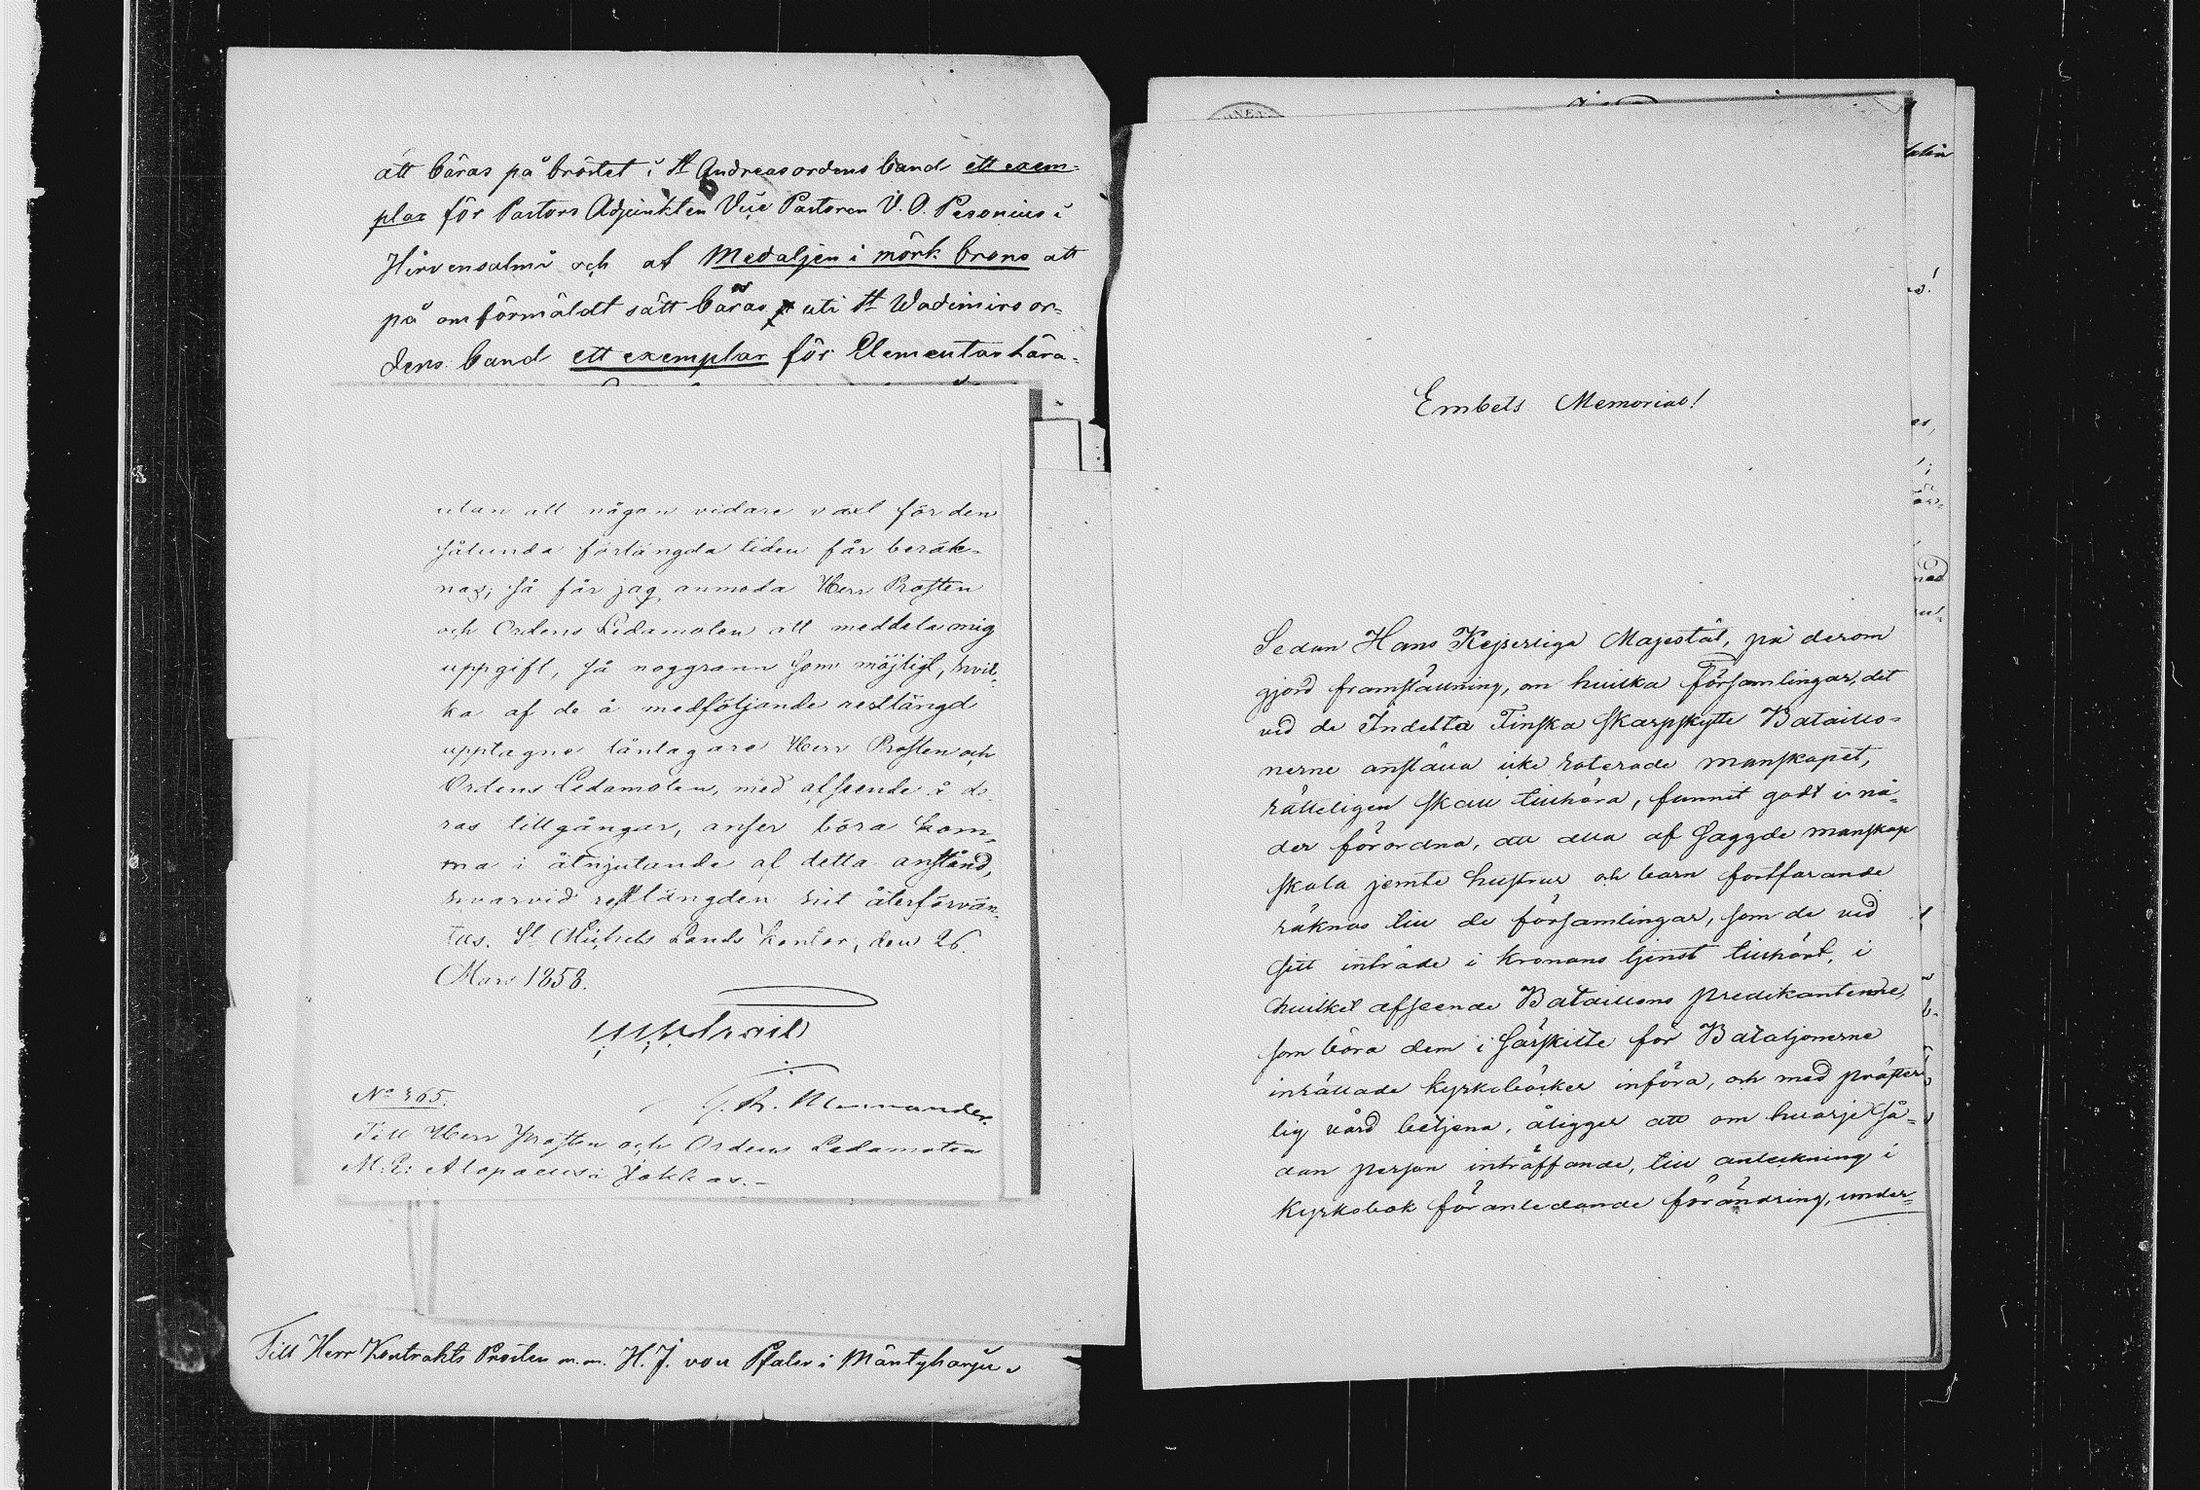 att bäras på bröstet i St Andreasordens band ett exem-
plar för Pastors Adjunkten Vice Pastoren V. O. Pesonius i
Hirvensalmi och af Medaljen i mörk brons att
på omförmäldt sätt bäras uti St Wadimirs or-
dens band ett exemplar för Elementarlära-
utan att någon vidare växt för den
sålunda förlängda tiden får beräk-
nas; så får jag anmoda Herr Prosten
och Ordens Ledamoten att meddela mig
uppgift, så noggrann som möjligt, hvil-
ka af de å medföljande restlängd
upptagne låntagare Herr Prosten och
Ordens Ledamoten, med afseende å de-
ras tillgångar, anser böra kom-
ma i åtnjutande af detta anstånd,
hvarvid restlängden hit återförvän-
tas. St Michels Lands Kontor, den 26
Mars 1858.
No 365.
Till Herr Prosten och Ordens Ledamoten
M. E: Alopaeus i Jokkas.-
Till Herr Kontrakts Prosten m.m. H. J. von Pfaler i Mäntyharju
Embets Memorial!
Sedan Hans Kejserliga Majestät, på derom
gjord framställning, om hvilka församlingar, det
vid de Indelta Finska Skarpskytte Bataillo-
nerne anstälta icke roterade manskapet,
rätteligen skall tillhöra, funnit godt i nå-
der förordna, att alla af sagde manskap
skola jemte hustrur och barn fortfarande
räknas till de församlingar, som de vid
sitt inträde i kronans tjenst tillhört, i
hvilket afseende Bataillons predikanterne,
som böra dem i särskilte för Bataljonerne
inrättade kyrkoböcker införa, och med präster-
lig vård betjena, åligger att om hvarje så-
dan person inträffande, till anteckning i
Kyrkobok föranledande förändring, under-